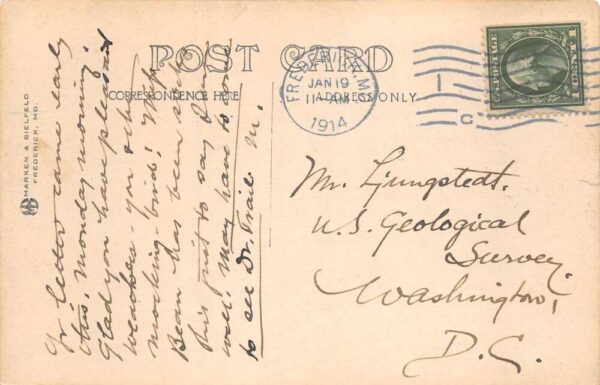 POST CARD
CORRESPONDENCE HERE
ADDRESS ONLY
FREDERICK, MD.
JAN 19
11 AM
1914
1
C
U.S. POSTAGE
1 CENT 1
MARKEN & BIELFELD
FREDERICK, MD.
Yr letter came early
this, Monday morning.
Glad you have pleasant
weather - you & the
mocking-bird! Wish
Bean has been sick
this just to say I am
well. May have to come
to see Dr. Trail. M.
Mr. Ljungstedt.
U.S. Geological
Survey.
Washington,
D.C.